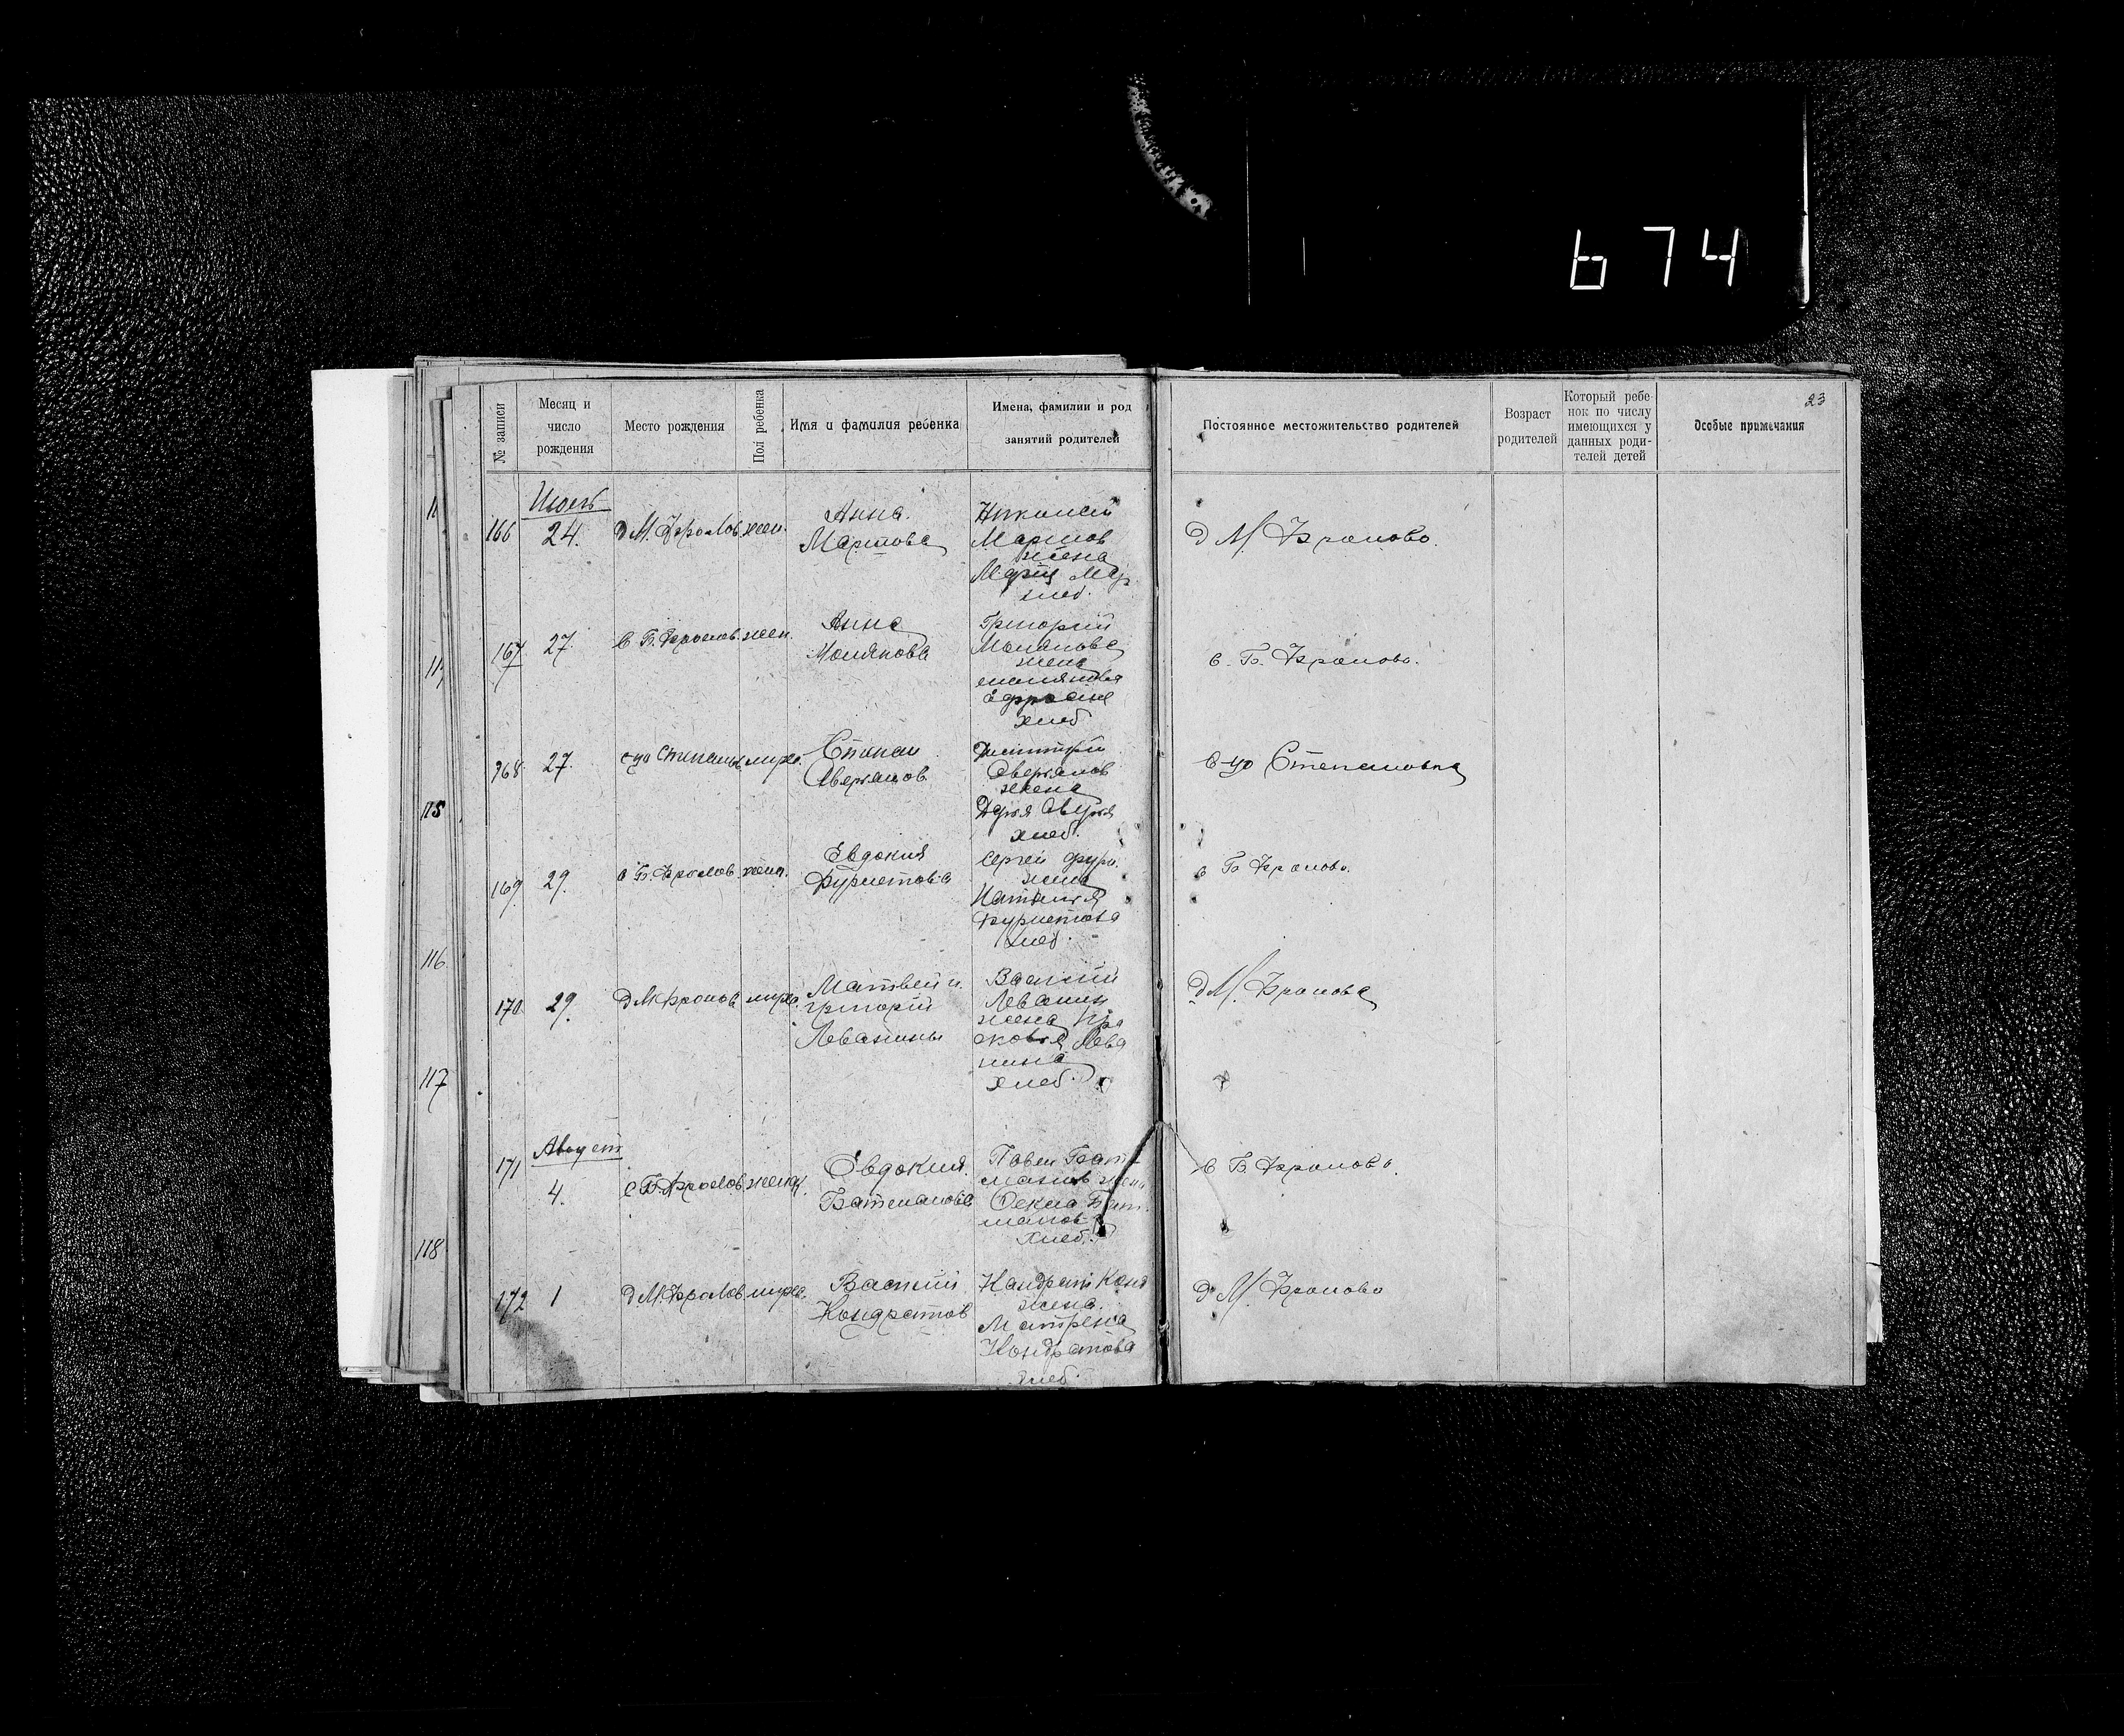 674
23
№ записи
Месяц и число рождения
Место рождения
Пол ребенка
Имя и фамилия ребенка
Имена, фамилии и род занятий родителей
Постоянное местожительство родителей
Возраст родителей
Который ребенок по числу имеющихся у данных родителей детей
Особые примечания
Июль
166 24. д М. Фролов. жен.
Анна.
Мартова
Николай
Мартов
жена
Мария Мар.
хлеб.
д М. Фролово.
167 27. с Б. Фролов. жен.
Анна
Молякова
Григорий
жена
хлеб
с. Б. Фролово.
168 27.
Степан
Аверьянов
Дмитрий
Аверьянов
жена
Дарья Аверья
хлеб.
Степановка
169 29. с Б. Фролов. жен.
Евдокия
Фурлетова
Сергей Фурл.
жена
Наталья
Фурлетова
хлеб.
с Б Фролово.
170 29. д М Фролов
Матвей и
Григорий
Левашины
Василий
Левашин
жена Пра
сковья Лева
шина
хлеб.
д М. Фролова
Август
171 4. с Б. Фролов. жен.
Евдокия.
Батманова
Павел Бат
манов жена
Фекла Бат
манова
хлеб.
с Б Фролово.
172 1 д М. Фролов
Василий
Кондратов
Кондрат Конд
жена.
Матрена
Кондратова
хлеб.
д М. Фролово
115
116
117
118